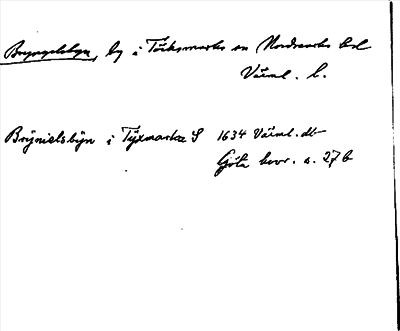 Bryngelsbyn, by i Töcksmarks sn Nordmarks hd
Värml. l.
Brÿnielsbÿn i Tÿxmarka S 1634 Värml. db
Göta hovr. a. 27 b